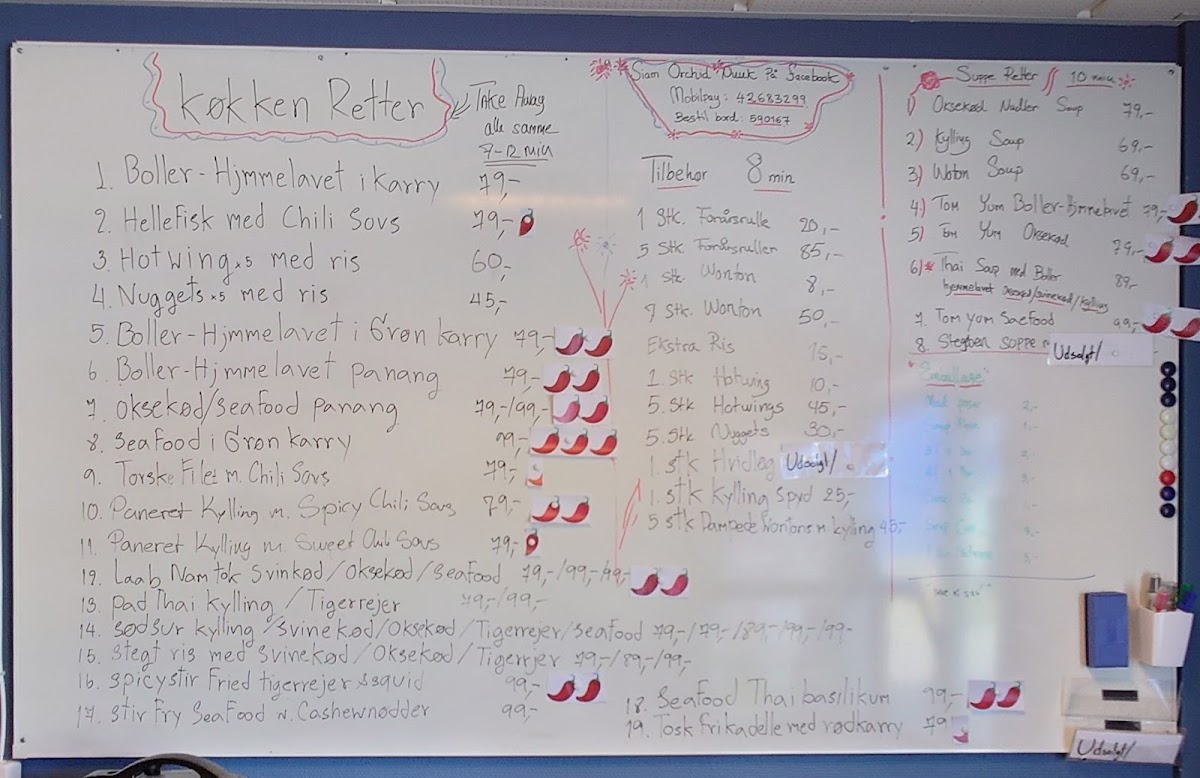 Køkken Retter
Take Away
alle samme
7-12 min
1. Boller-Hjmmelavet i karry 79,-
2. Hellefisk med Chili Sovs 79,-
3. Hotwing x5 med ris 60,-
4. Nuggets x5 med ris 45,-
5. Boller-Hjmmelavet i Grøn karry 79,-
6. Boller-Hjmmelavet panang 79,-
7. oksekød/seafood panang 79,-/99,-
8. Seafood i Grøn karry 99,-
9. Torske Filet m. Chili Sovs 79,-
10. Paneret Kylling m. Spicy Chili Sovs 79,-
11. Paneret Kylling m. Sweet Chili Sovs 79,-
12. Laab Namtok Svinkød/Oksekød/Seafood 79,-/99,-/99,-
13. pad Thai kylling / Tigerrejer 79,-/99,-
14. sødsur kylling /svinekød/Oksekød/Tigerrejer/seafood 79,-/79,-/89,-/99,-/99,-
15. stegt ris med svinekød/Oksekød/Tigerrjer 79,-/89,-/99,-
16. spicystir Fried tigerrejer &squid 99,-
17. Stir Fry SeaFood n. Cashewnødder 99,-
18. Seafood Thai basilikum 99,-
19. Tosk frikadelle med rødkarry 79
Siam Orchid På Facebook
Mobilpay: 42683299
Bestil bord: 590167
Tilbehør 8 min
1 Stk. Forårsrulle 20,-
5 Stk Forårsruller 85,-
1 Stk Wonton 8,-
7 Stk. Wonton 50,-
Ekstra Ris 15,-
1. Stk Hotwing 10,-
5. Stk Hotwings 45,-
5. Stk Nuggets 30,-
1. stk Hvidløg Udsolgt/
1. stk Kylling Spyd 25,-
5 stk Dampede Wontons m. kylling 45,-
Suppe Retter 10 min
1) Oksekød Nudler Soup 79,-
2) Kylling Soup 69,-
3) Woton Soup 69,-
4) Tom Yum Boller-Hmmelavet 79,-
5) Tom Yum Oksekød 79,-
6) Thai Soup med Boller 89,-
hjemmelavet Oksekød/svinekød/kylling
7. Tom yum Saefood 99,-
8. Stegben soppe Udsolgt/
Udsolgt/